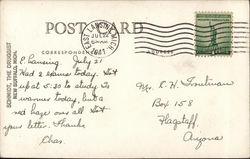 POST CARD
CORRESPONDENCE
EAST LANSING, MICH.
JUL 22
SCHMIDT, THE DRUGGIST
NEW BUFFALO, MICH.
E. Lansing July 21
Had 2 exams today. Got
up at 5:30 to study. Is
warmer today, but a
red haze over all. Got
your letter. Thanks
Chas.
Mr. C. H. Troutman
Box 158
Flagstaff,
Arizona